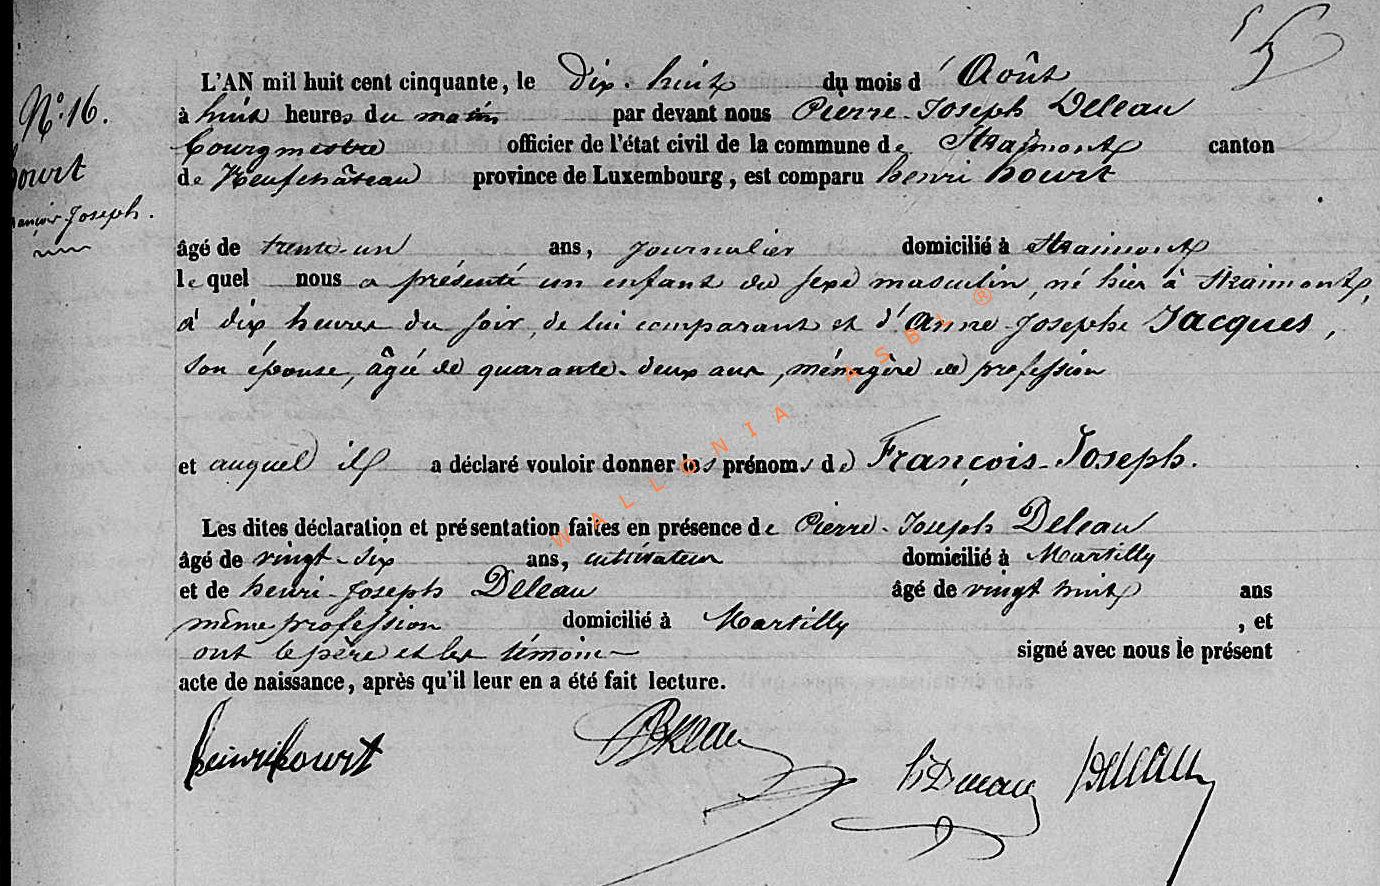 L'AN mil huit cent cinquante, le dix-huit du mois d'Août
N.° 16. à huit heures du matin par devant nous Pierre-Joseph Deleau
bourgmestre officier de l'état civil de la commune de Straimont canton
hourt
de Neufchâteau province de Luxembourg, est comparu henri hourt
françois-Joseph.
âgé de trente-un ans, journalier domicilié à Straimont
lequel nous a présenté un enfant du sexe masculin, né hier à Straimont,
à dix heures du soir, de lui comparant et d'Anne-Josephe Jacques,
son épouse, âgée de quarante-deux ans, ménagère de profession
et auquel il a déclaré vouloir donner les prénoms de François-Joseph.
Les dites déclaration et présentation faites en présence de Pierre-Joseph Deleau
âgé de vingt-six ans, cultivateur domicilié à Martilly
et de henri-Joseph Deleau âgé de vingt huit ans
même profession domicilié à Martilly, et
ont le père et les témoins signé avec nous le présent
acte de naissance, après qu'il leur en a été fait lecture.
henri hourt Deleau Deleau
WALLONIA ASBL ®